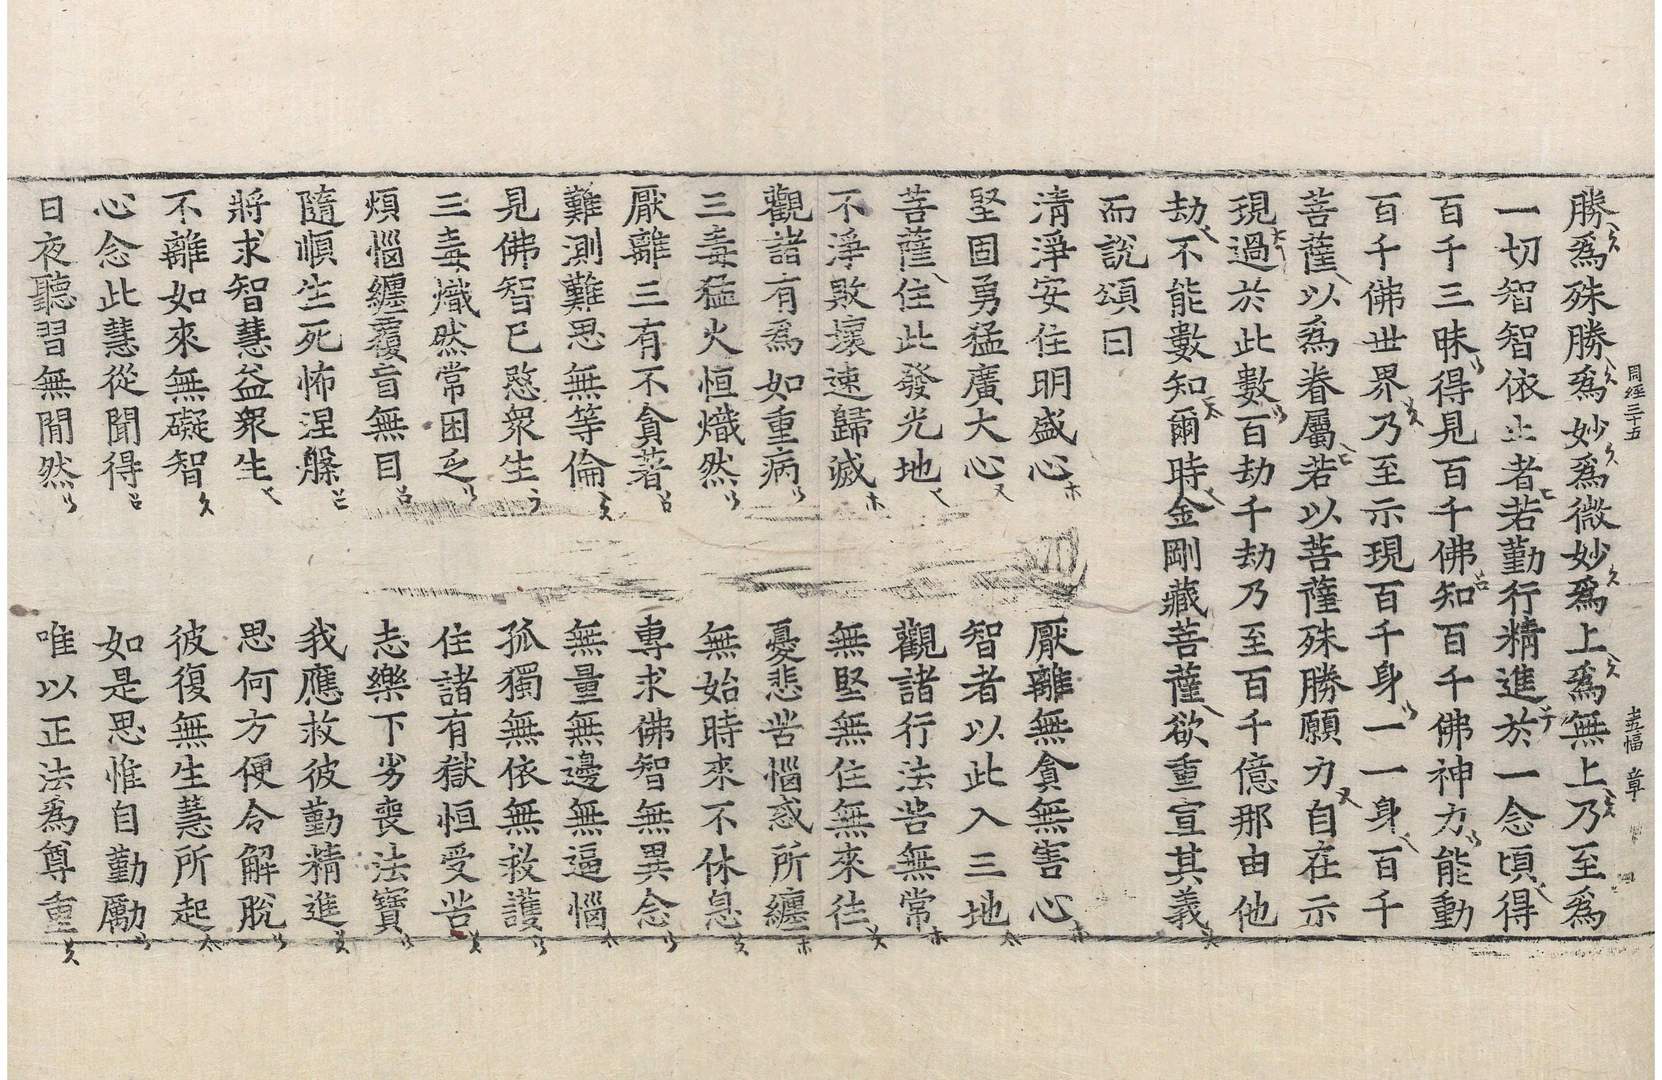 同經三十五
十五幅 章
勝爲殊勝爲妙爲微妙爲上爲無上乃至爲
一切智智依止者若勤行精進於一念頃得
百千三昧得見百千佛知百千佛神力能動
百千佛世界乃至示現百千身一一身百千
菩薩以爲眷屬若以菩薩殊勝願力自在示
現過於此數百劫千劫乃至百千億那由他
劫不能數知爾時金剛藏菩薩欲重宣其義
而說頌曰
清淨安住明盛心 厭離無貪無害心
堅固勇猛廣大心 智者以此入三地
菩薩住此發光地 觀諸行法苦無常
不淨敗壞速歸滅 無堅無住無來往
觀諸有爲如重病 憂悲苦惱惑所纏
三毒猛火恒熾然 無始時來不休息
厭離三有不貪著 專求佛智無異念
難測難思無等倫 無量無邊無逼惱
見佛智已愍衆生 孤獨無依無救護
三毒熾然常困乏 住諸有獄恒受苦
煩惱纏覆盲無目 志樂下劣喪法寶
隨順生死怖涅槃 我應救彼勤精進
將求智慧益衆生 思何方便令解脫
不離如來無礙智 彼復無生慧所起
心念此慧從聞得 如是思惟自勤勵
日夜聽習無閒然 唯以正法爲尊重